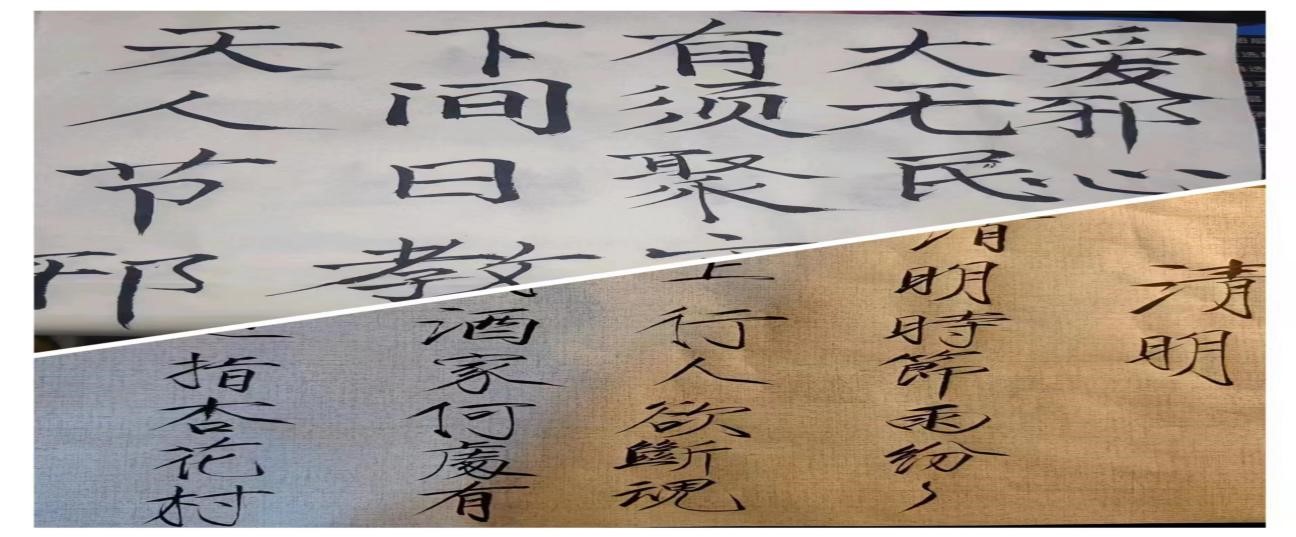 天下有大爱
人间须无邪
节日聚民心
邪教
清明
清明時節雨紛々
上行人欲斷魂
酒家何處有
指杏花村